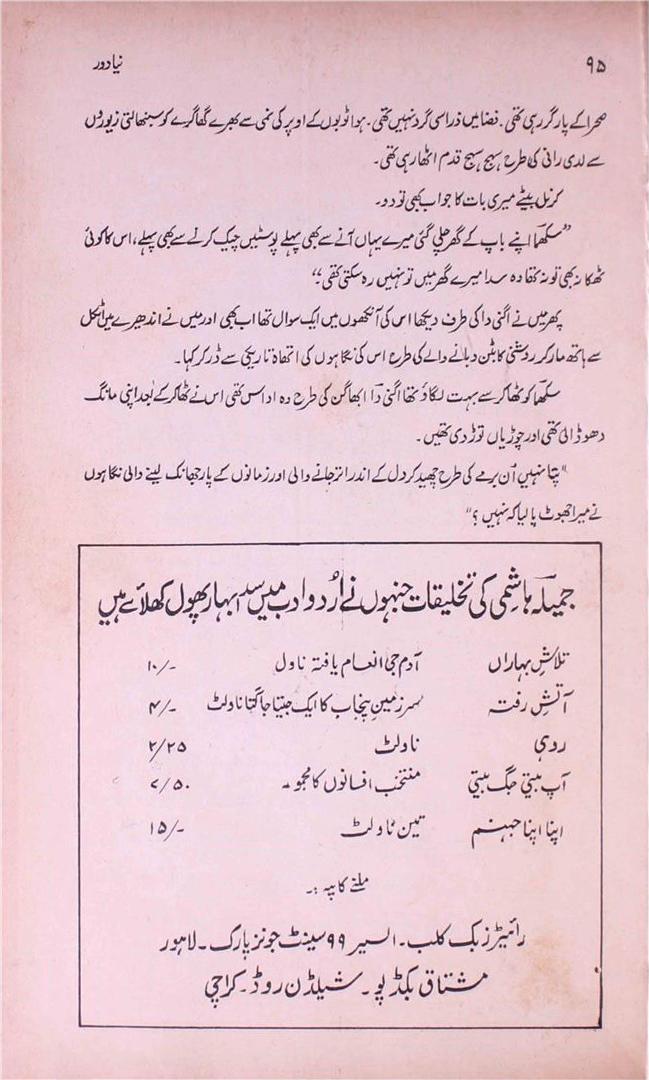 ۹۵ نیا دور
صحرا کے پار گر رہی تھی۔ فضا میں ذرا سی گرد نہیں تھی۔ ہوا ٹوبوں کے اوپر کی نمی سے بھرے گھاگرے کو سنبھالتی زیوروں
سے لدی رانی کی طرح سہج سہج قدم اٹھا رہی تھی۔
کرنل بیٹے میری بات کا جواب بھی تو دو۔
"سکھاّ اپنے باپ کے گھر چلی گئی میرے یہاں آنے سے بھی پہلے پوسٹیں چیک کرنے سے بھی پہلے، اس کا کوئی
ٹھکانہ بھی تو نہ تھا وہ سدا میرے گھر میں تو نہیں رہ سکتی تھی۔"
پھر میں نے اگنی دا کی طرف دیکھا اس کی آنکھوں میں ایک سوال تھا اب بھی اور میں نے اندھیرے میں اٹکل
سے ہاتھ مار کر روشنی کا بٹن دبانے والے کی طرح اس کی نگاہوں کی اتھاہ تاریکی سے ڈر کر کہا۔
سکھاّ کو ٹھاکر سے بہت لگاؤ تھا اگنی دا ابھاگن کی طرح وہ اداس تھی اس نے ٹھاکر کے بعد اپنی مانگ
دھو ڈالی تھی اور چوڑیاں توڑ دی تھیں۔
"پتا نہیں اُن برمے کی طرح چھید کر دل کے اندر اتر جانے والی اور زمانوں کے پار جھانک لینے والی نگاہوں
نے میرا جھوٹ پا لیا کہ نہیں؟"
جمیلہ ہاشمی کی تخلیقات جنہوں نے اُردو ادب میں سدا بہار پھول کھلائے ہیں
تلاشِ بہاراں آدم جی انعام یافتہ ناول ۱۰/-
آتشِ رفتہ سرزمینِ پنجاب کا ایک جیتا جاگتا ناولٹ ۴/-
روہی ناولٹ ۲/۲۵
آپ بیتی جگ بیتی منتخب افسانوں کا مجموعہ ۷/۵۰
اپنا اپنا جہنم تین ناولٹ ۱۵/-
ملنے کا پتہ :-
رائیٹرز بک کلب۔ السیر ۹۹ سینٹ جونز پارک۔ لاہور
مشتاق بکڈپو۔ شیلڈن روڈ۔ کراچی